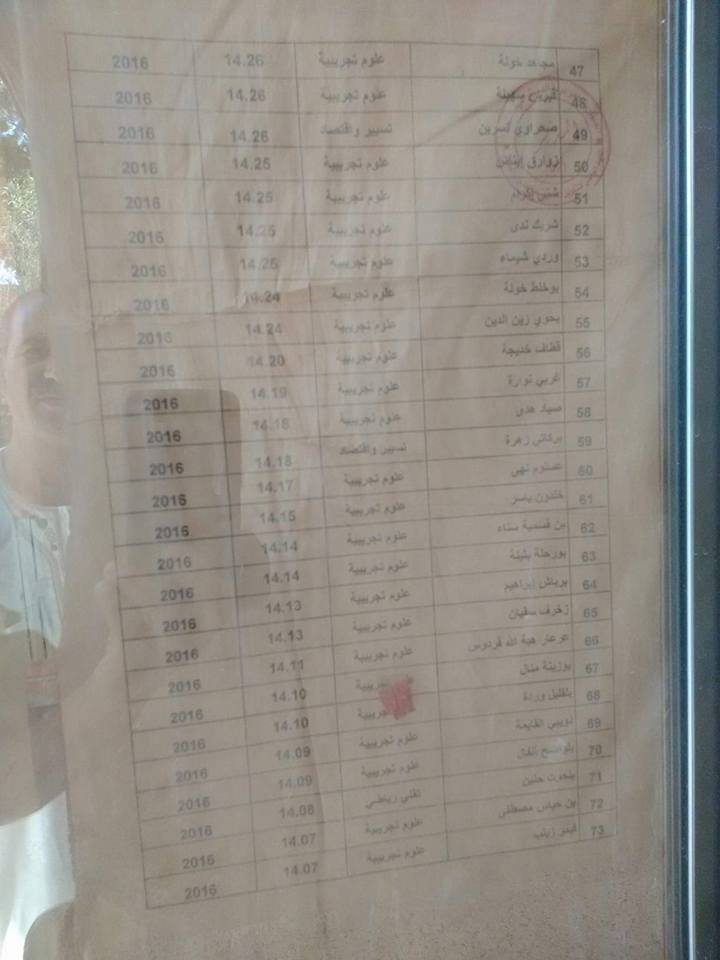 47 مجاهد خولة علوم تجريبية 14.26 2016
48 سهيلة علوم تجريبية 14.26 2016
49 صحراوي نسرين تسيير واقتصاد 14.26 2016
50 زوارق إيناس علوم تجريبية 14.25 2016
51 إكرام علوم تجريبية 14.25 2016
52 شريك ندى علوم تجريبية 14.25 2016
53 وردي شيماء علوم تجريبية 14.25 2016
54 بوخلط خولة علوم تجريبية 14.24 2016
55 يحوي زين الدين علوم تجريبية 14.24 2016
56 قطاف خديجة علوم تجريبية 14.20 2016
57 غربي نوارة علوم تجريبية 14.19 2016
58 صياد هدى علوم تجريبية 14.18 2016
59 بركاتي زهرة تسيير واقتصاد 14.18 2016
60 نهى علوم تجريبية 14.17 2016
61 خلدون ياسر علوم تجريبية 14.15 2016
62 بن قسمية سناء علوم تجريبية 14.14 2016
63 بورحلة بثينة علوم تجريبية 14.14 2016
64 برباش إبراهيم علوم تجريبية 14.13 2016
65 زخرف سفيان علوم تجريبية 14.13 2016
66 عرعار هبة الله فردوس علوم تجريبية 14.11 2016
67 بوزينة منال علوم تجريبية 14.10 2016
68 بلقليل وردة علوم تجريبية 14.10 2016
69 ذويبي علوم تجريبية 14.09 2016
70 بلواضح أنفال علوم تجريبية 14.09 2016
71 بلحوت حنين تقني رياضي 14.08 2016
72 بن مصطفى علوم تجريبية 14.07 2016
73 زينب علوم تجريبية 14.07 2016